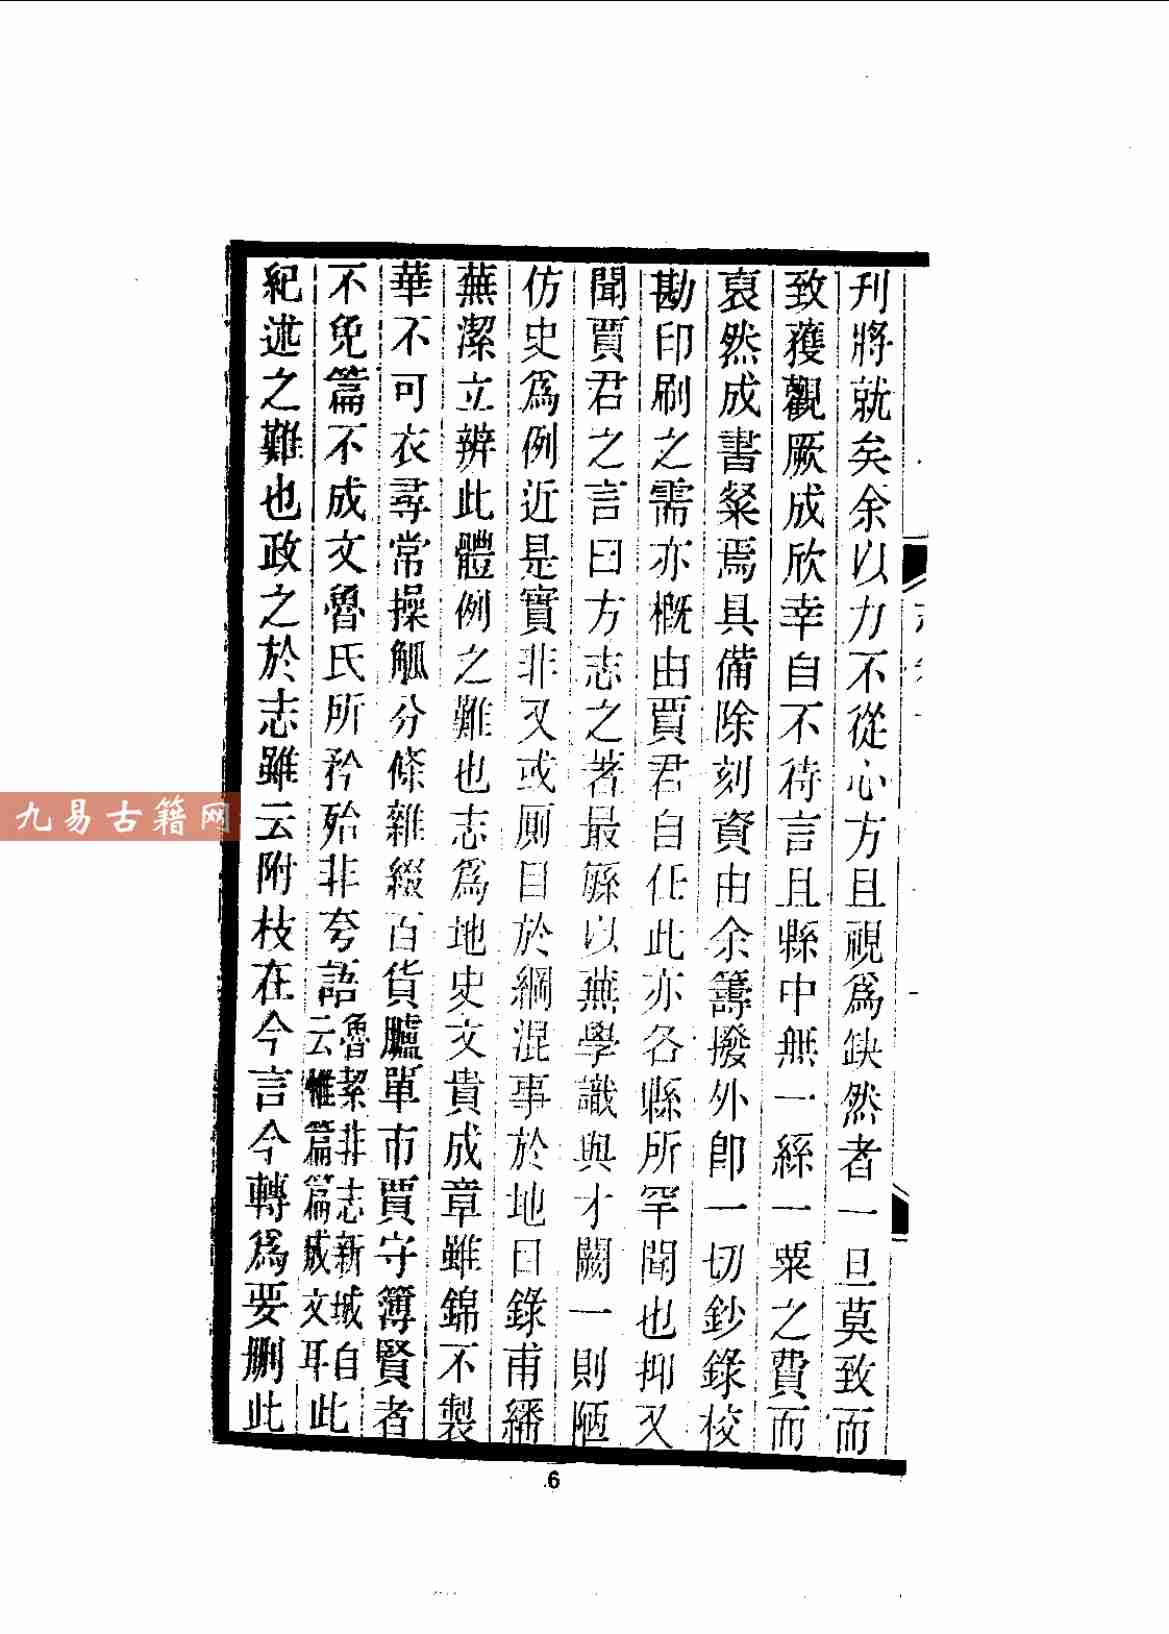 刋將就矣余以力不從心方且視爲缺然者一旦莫致而
致獲觀厥成欣幸自不待言且縣中無一絲一粟之費而
裒然成書粲焉具備除刻資由余籌撥外卽一切鈔錄校
勘印刷之需亦槪由賈君自任此亦各縣所罕聞也抑又
聞賈君之言曰方志之著最緐以蕪學識與才闕一則陋
仿史爲例近是實非又或厠目於綱混事於地日錄甫繙
蕪潔立辨此體例之難也志爲地史文貴成章雖錦不製
華不可衣尋常操觚分條雜綴百貨臚單市賈守簿賢者
不免篇不成文魯氏所矜殆非夸語魯絜非志新城自云惟篇篇成文耳此
紀述之難也政之於志雖云附枝在今言今轉爲要删此
九易古籍网
6